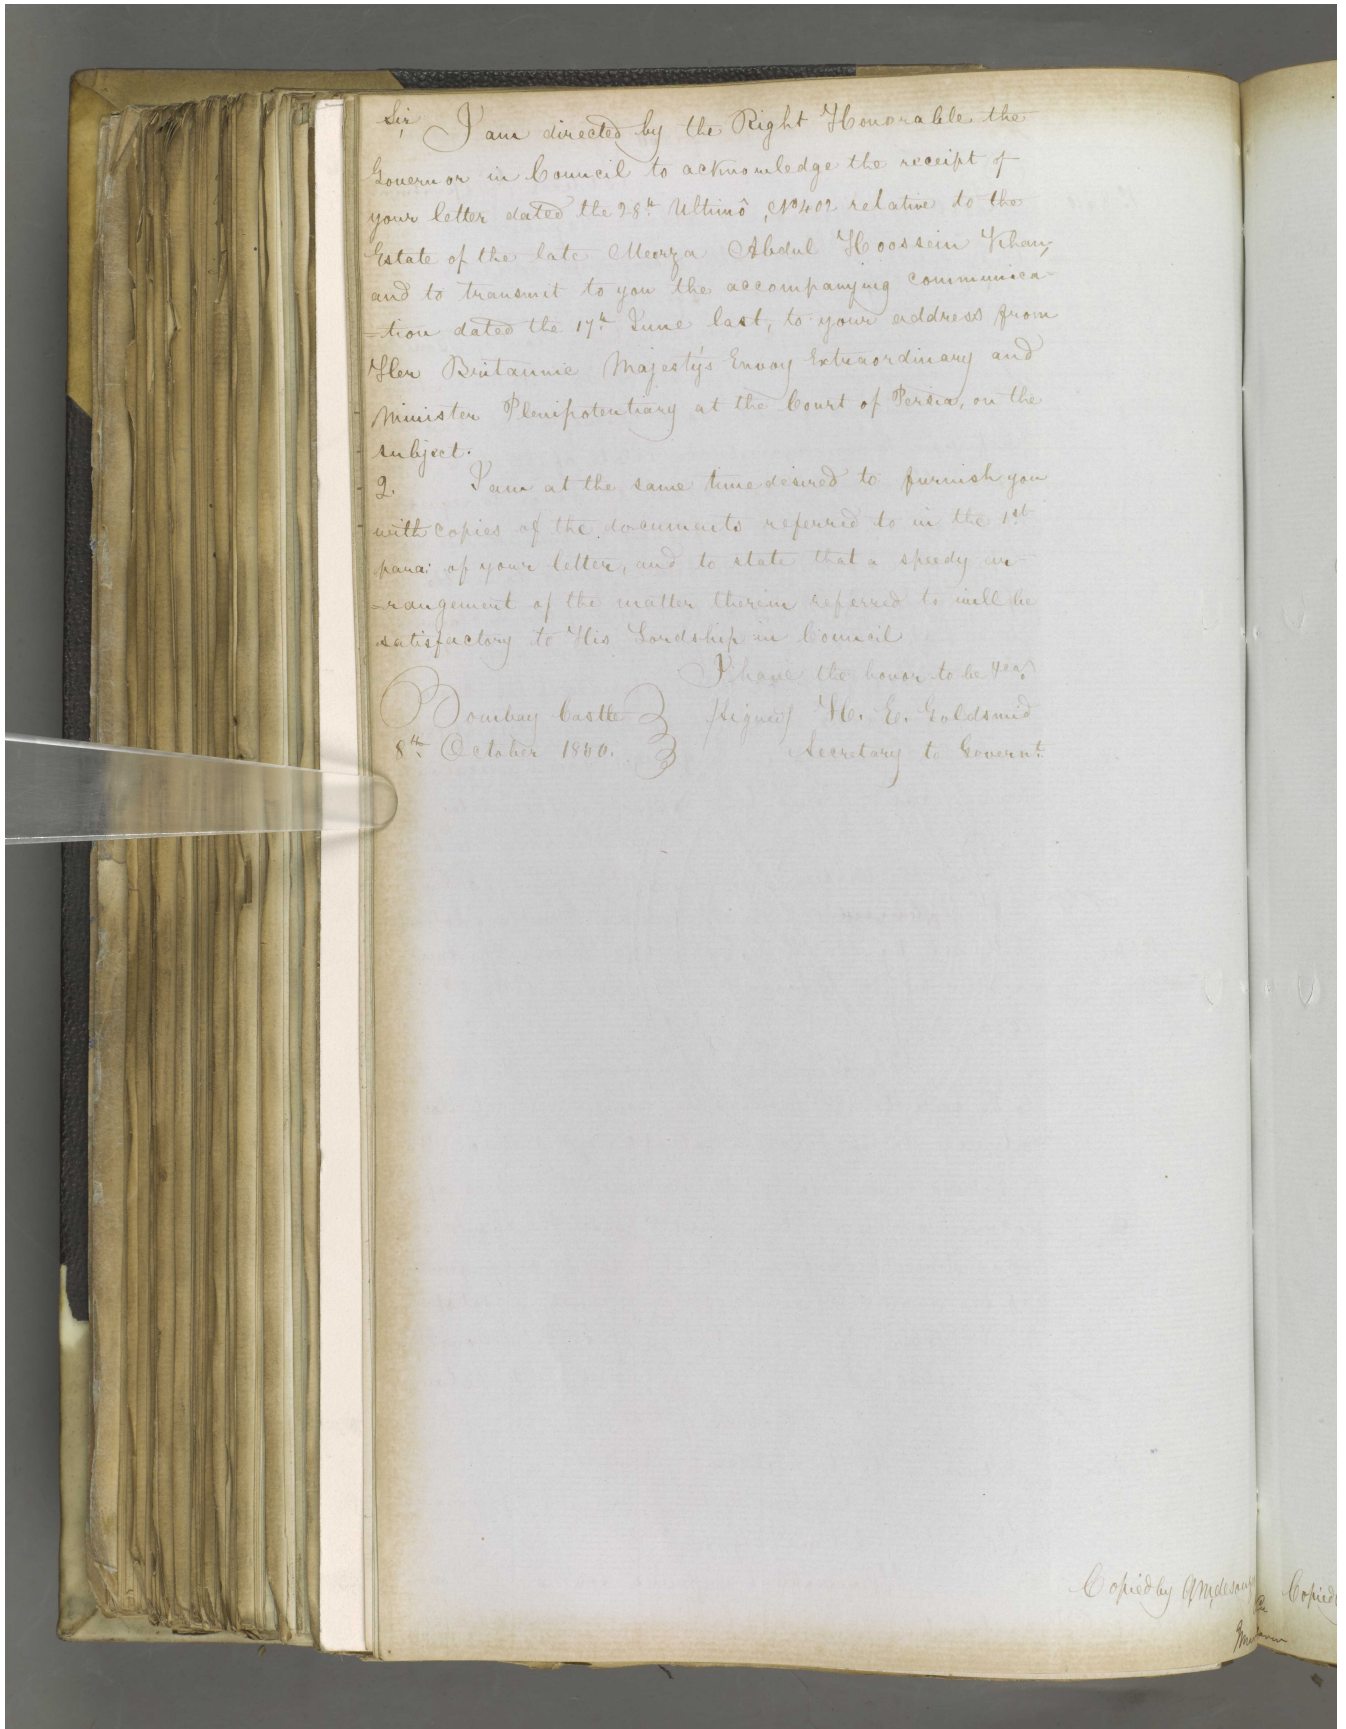 Sir,
I am directed by the Right Honorable the
Governor in Council to acknowledge the receipt of
your letter dated the 28th Ultimô, No 402 relative to the
Estate of the late Meerza Abdul Hoossein Khan,
and to transmit to you the accompanying communica-
-tion dated the 17th June last, to your address from
Her Britannic Majesty's Envoy Extraordinary and
Minister Plenipotentiary at the Court of Persia, on the
subject.
2. I am at the same time desired to furnish you
with copies of the documents referred to in the 1st
para: of your letter, and to state that a speedy ar-
-rangement of the matter therein referred to will be
satisfactory to His Lordship in Council
I have the honor to be &ca
Bombay Castle (signed) H. E. Goldsmid
8th October 1850. Secretary to Governt.
Copied by
Copied